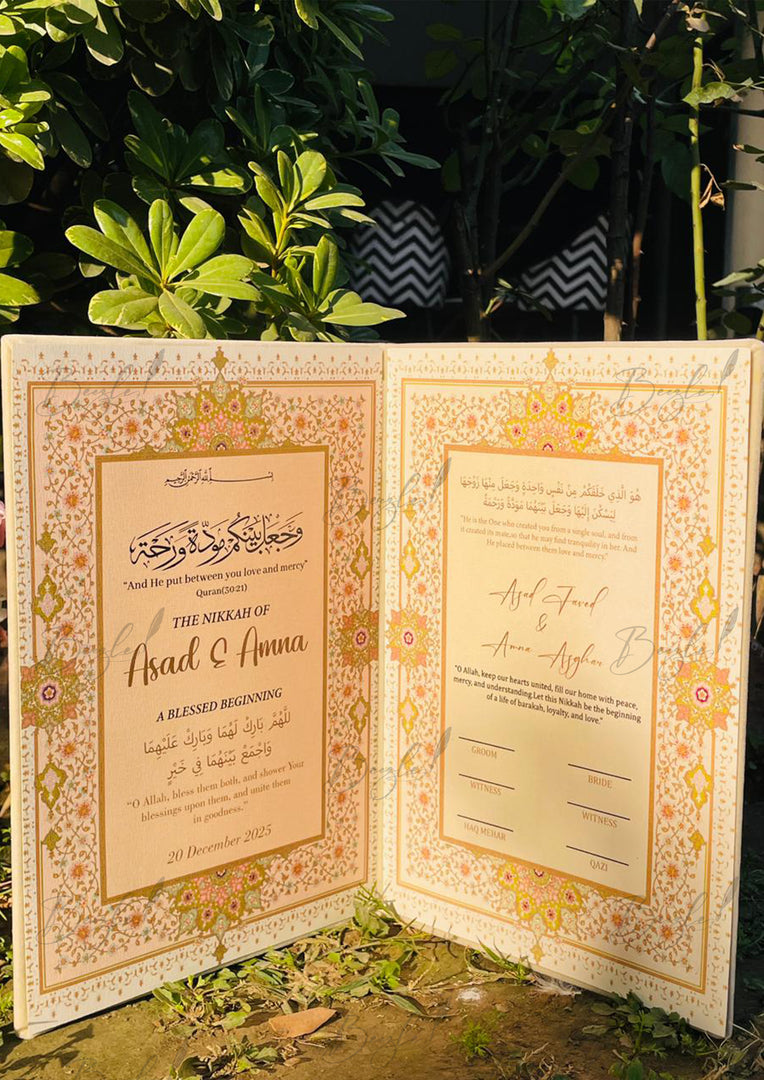 بسم الله الرحمن الرحيم
وَجَعَلَ بَيْنَكُمْ مَوَدَّةً وَرَحْمَةً
“And He put between you love and mercy”
Quran(30:21)
THE NIKKAH OF
Asad & Amna
A BLESSED BEGINNING
اللَّهُمَّ بَارِكْ لَهُمَا وَبَارِكْ عَلَيْهِمَا
وَاجْمَعْ بَيْنَهُمَا فِي خَيْرٍ
“O Allah, bless them both, and shower Your
blessings upon them, and unite them
in goodness.”
20 December 2025
هُوَ الَّذِي خَلَقَكُمْ مِنْ نَفْسٍ وَاحِدَةٍ وَجَعَلَ مِنْهَا زَوْجَهَا
لِيَسْكُنَ إِلَيْهَا وَجَعَلَ بَيْنَهُمَا مَوَدَّةً وَرَحْمَةً
"He is the One who created you from a single soul, and from
it created its mate,so that he may find tranquility in her. And
He placed between them love and mercy."
Asad Javed
&
Amna Asghar
"O Allah, keep our hearts united, fill our home with peace,
mercy, and understanding.Let this Nikkah be the beginning
of a life of barakah, loyalty, and love."
GROOM
BRIDE
WITNESS
WITNESS
HAQ MEHAR
QAZI